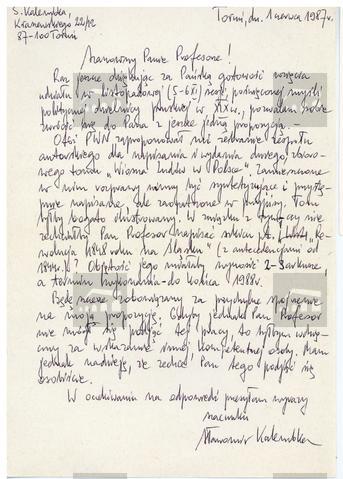 S. Kalembka,
Kraszewskiego 22/72
87-100 Toruń
Toruń, dn. 1 czerwca 1987 r.
Szanowny Panie Profesorze!
Raz jeszcze dziękując za Pańską gotowość wzięcia
udziału w listopadowej (5-6 XI) sesji, poświęconej myśli
politycznej dzielnicy pruskiej w XIX w., pozwalam sobie
zwrócić się do Pana z jeszcze jedną propozycją.
Otóż PWN zaproponował mi zebranie zespołu
autorskiego dla napisania i wydania dużego, zbioro-
wego tomu „Wiosna Ludów w Polsce". Zamieszczone
w nim rozprawy winny być syntetyzujące i przystę-
pnie napisane, ale zaopatrzone w przypisy. Tom
byłby bogato ilustrowany. W związku z tym czy nie
zechciałby Pan Profesor napisać szkicu pt. „Re-
wolucja 1848 roku na Śląsku" (z antecedencjami od
1844 r.)? Objętość jego miałaby wynosić 2-3 arkusze,
a termin wykonania - do końca 1988 r.
Będę szczerze zobowiązany za przychylne spojrzenie
na moją propozycję. Gdyby jednak Pan Profesor
nie mógł się podjąć tej pracy, to byłbym wdzię-
czny za wskazanie innej kompetentnej osoby. Mam
jednak nadzieję, że zechce Pan tego podjąć się
osobiście.
W oczekiwaniu na odpowiedź przesyłam wyrazy
szacunku
Sławomir Kalembka